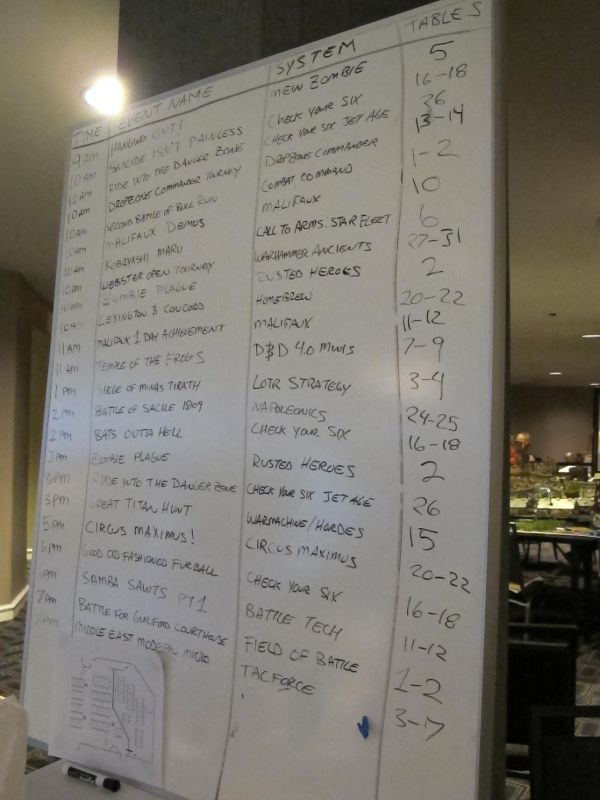 TIME EVENT NAME SYSTEM TABLES
9 AM HANGING OUT! NEW ZOMBIE 5
10 AM SUICIDE ISN'T PAINLESS CHECK YOUR SIX 16-18
10 AM RIDE INTO THE DANGER ZONE CHECK YOUR SIX JET AGE 26
10 AM DROPZONE COMMANDER TOURNEY DROPZONE COMMANDER 13-14
10 AM SECOND BATTLE OF BULL RUN COMBAT COMMAND 1-2
10 AM MALIFAUX DEMOS MALIFAUX 10
10 AM KOBAYASHI MARU CALL TO ARMS: STAR FLEET 6
10 AM WEBSTER OPEN TOURNEY WARHAMMER ANCIENTS 27-31
10 AM ZOMBIE PLAGUE RUSTED HEROES 2
10 AM LEXINGTON & CONCORD HOMEBREW 20-22
11 AM MALIFAUX 1 DAY ACHIEVEMENT MALIFAUX 11-12
11 AM TEMPLE OF THE FROGS D&D 4.0 MINIS 7-9
1 PM SIEGE OF MINAS TIRATH LOTR STRATEGY 3-4
2 PM BATTLE OF SACILE 1809 NAPOLEONICS 24-25
2 PM BATS OUTTA HELL CHECK YOUR SIX 16-18
2 PM ZOMBIE PLAGUE RUSTED HEROES 2
3 PM RIDE INTO THE DANGER ZONE CHECK YOUR SIX JET AGE 26
3 PM GREAT TITAN HUNT WARMACHINE/HORDES 15
5 PM CIRCUS MAXIMUS! CIRCUS MAXIMUS 20-22
6 PM GOOD OLD FASHIONED FURBALL CHECK YOUR SIX 16-18
PM SAMBA SAWTS PT1 BATTLE TECH 11-12
7 PM BATTLE FOR GUILFORD COURTHOUSE FIELD OF BATTLE 1-2
7 PM MIDDLE EAST MODERN MICRO TACFORCE 3-7